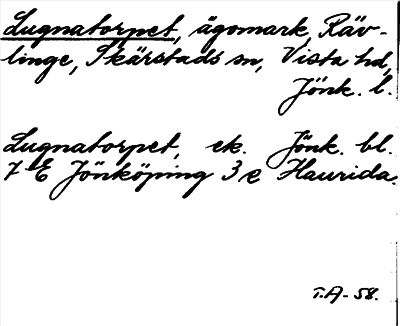 Lugnatorpet, ägomark, Räv-
linge, Skärstads sn, Vista hd,
Jönk. l.
Lugnatorpet, ek. Jönk. bl.
7 E Jönköping 3 e Haurida.
T.A-58.